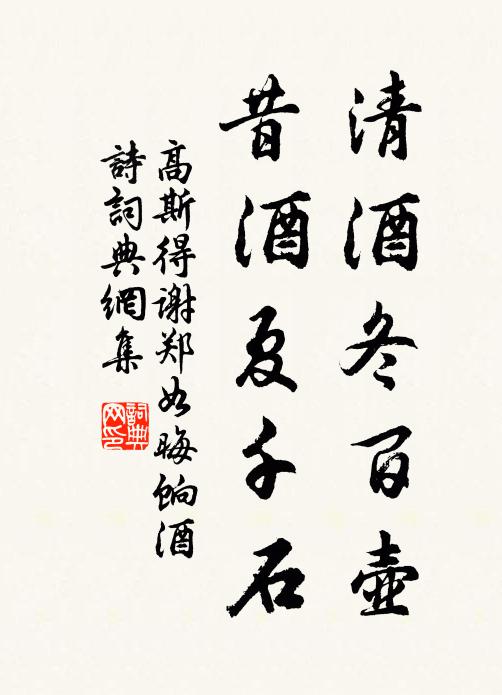 清酒冬百壺
昔酒夏千石
高斯得谢郑如晦饷酒
詩詞典網集
詞典网印